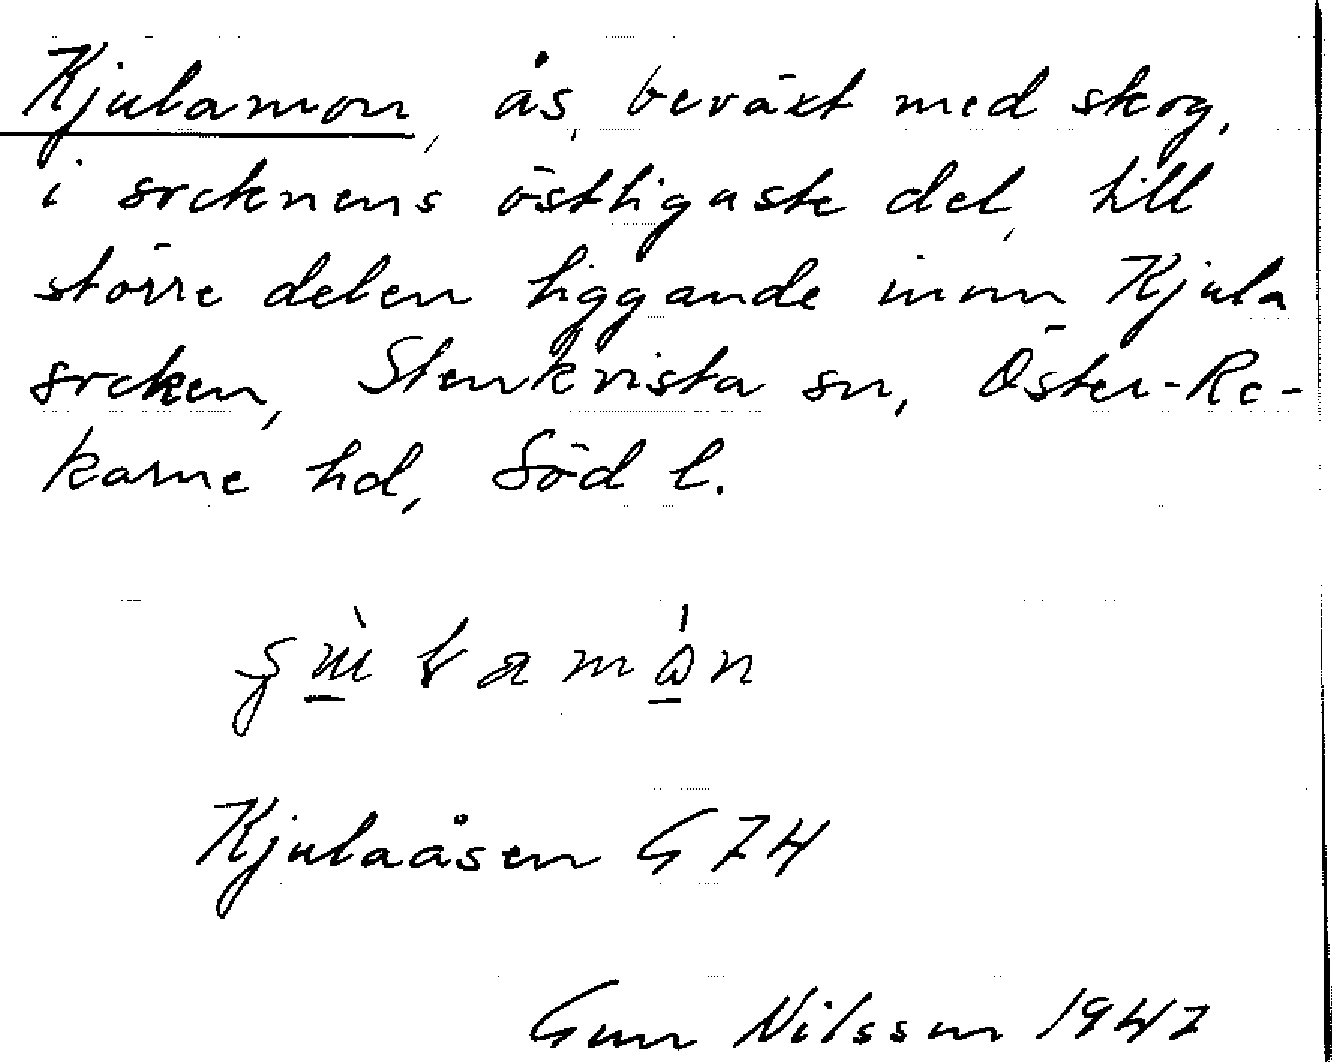 Kjulamon, ås, beväxt med skog,
i socknens östligaste del, till
större delen liggande inom Kjula
socken, Stenkvista sn, Öster-Re-
karne hd, Söd l.
Kjulaåsen G 74
Gun Nilsson 1947